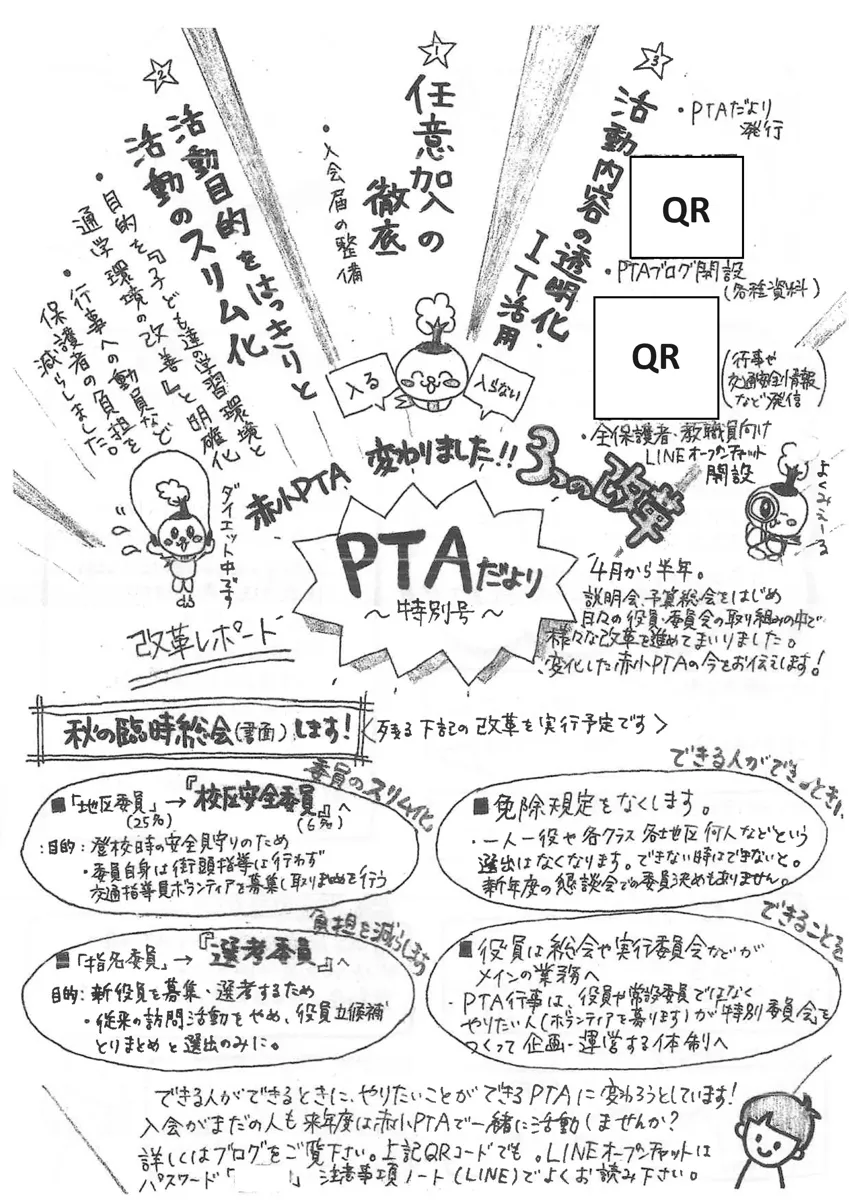 ☆1
任意加入の
徹底
・入会届の整備
☆2
活動目的をはっきりと
活動のスリム化
・目的を『子ども達の学習環境と
通学環境の改善』と明確化
・行事への動員など
保護者の負担を
減らしました。
☆3
活動内容の透明化・
IT活用
・PTAだより
発行
QR
・PTAブログ開設
(各種資料)
QR
(行事や
交通安全情報
など発信)
・全保護者・教職員向け
LINEオープンチャット
開設
よくみえーる
入る
入らない
ダイエット中です
赤小PTA 変わりました!! 3つの改革
PTAだより
～特別号～
改革レポート
4月から半年。
説明会、予算総会をはじめ
日々の役員・委員会の取り組みの中で
様々な改革を進めてまいりました。
変化した赤小PTAの今をお伝えします!
秋の臨時総会(書面)します!
〈残る下記の改革を実行予定です〉
委員のスリム化
■「地区委員」→『校区安全委員』へ
(25名) (6名)
目的:登校時の安全見守りのため
・委員自身は街頭指導は行わず
交通指導員ボランティアを募集し取りまとめを行う
できる人ができるときに
■免除規定をなくします。
・一人一役や各クラス各地区何人などという
選出はなくなります。できない時はできないと。
新年度の懇談会での委員決めもありません。
負担を減らします
■「指名委員」→『選考委員』へ
目的:新役員を募集・選考するため
・従来の訪問活動をやめ、役員立候補
とりまとめと選出のみに。
できることを
■役員は総会や実行委員会などが
メインの業務へ
・PTA行事は、役員や常設委員ではなく
やりたい人(ボランティアを募ります)が「特別委員会」を
つくって企画・運営する体制へ
できる人ができるときに、やりたいことができるPTAに変わろうとしています!
入会がまだの人も来年度は赤小PTAで一緒に活動しませんか?
詳しくはブログをご覧下さい。上記QRコードでも。LINEオープンチャットは
パスワード「 」 注意事項ノート(LINE)でよくお読み下さい。